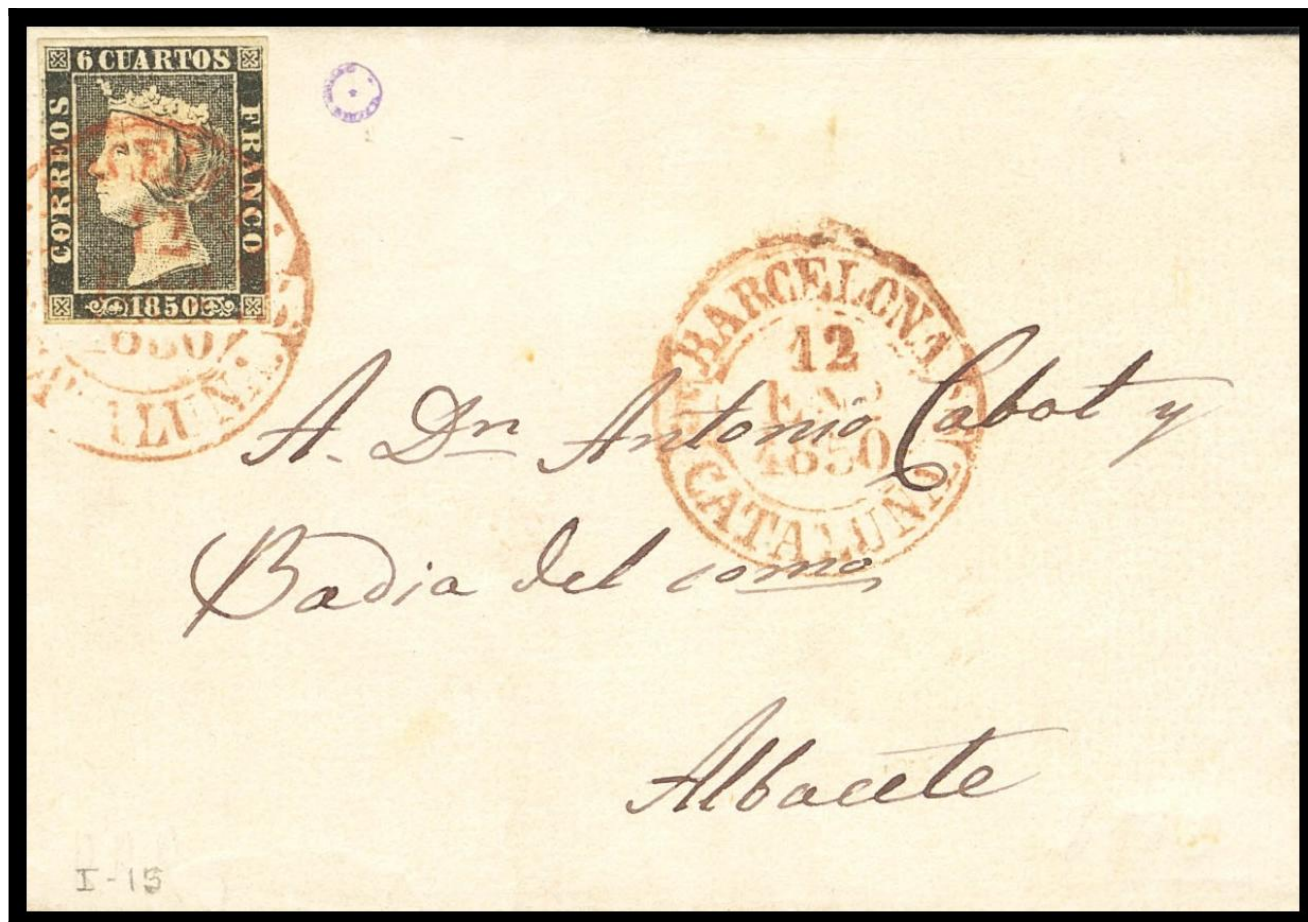 6 CUARTOS
CORREOS
FRANCO
1850
BARCELONA
12
ENE
1850
CATALUÑA
A. Dn Antonio Cabot y
Badia del como
Albacete
I-15